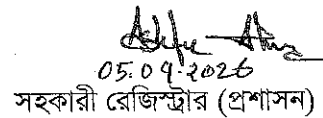 05.09.2026
সহকারী রেজিস্ট্রার (প্রশাসন)